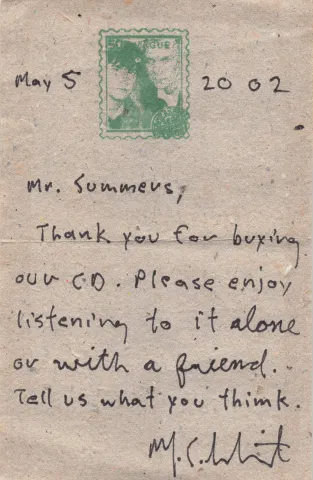 May 5 2002
Mr. Summers,
Thank you for buying
our CD. Please enjoy
listening to it alone
or with a friend.
Tell us what you think.